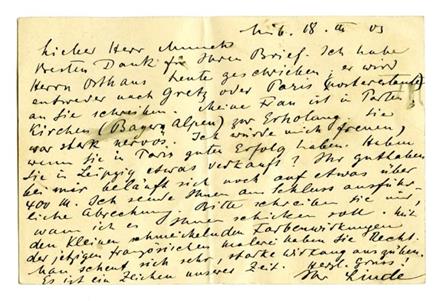 Lüb. 18. III 03
Lieber Herr Munch
Besten Dank für Ihren Brief. Ich habe
Herrn Orthaus heute geschrieben, er wird
entweder nach Gretz oder Paris (posterestante)
an Sie schreiben. Meine Frau ist in Parten-
kirchen (Bayern Alpen) zur Erholung. Sie
war stark nervös. Ich würde mich freuen,
wenn Sie in Paris guten Erfolg haben. Haben
Sie in Leipzig etwas verkauft? Ihr guthaben
bei mir beläuft sich noch auf etwas über
400 M. Ich sende Ihnen am Schluss ausführ-
liche Abrechnung. Bitte schreiben Sie mir,
wann ich es Ihnen schicken soll. Mit
den kleinen schmeichelnden Farbenwirkungen
der jetzigen französischen Malerei haben Sie Recht.
Man scheut sich sehr, starke Wirkung auszuüben.
Es ist ein Zeichen unserer Zeit. Herzl. Gruss!
Ihr Linde